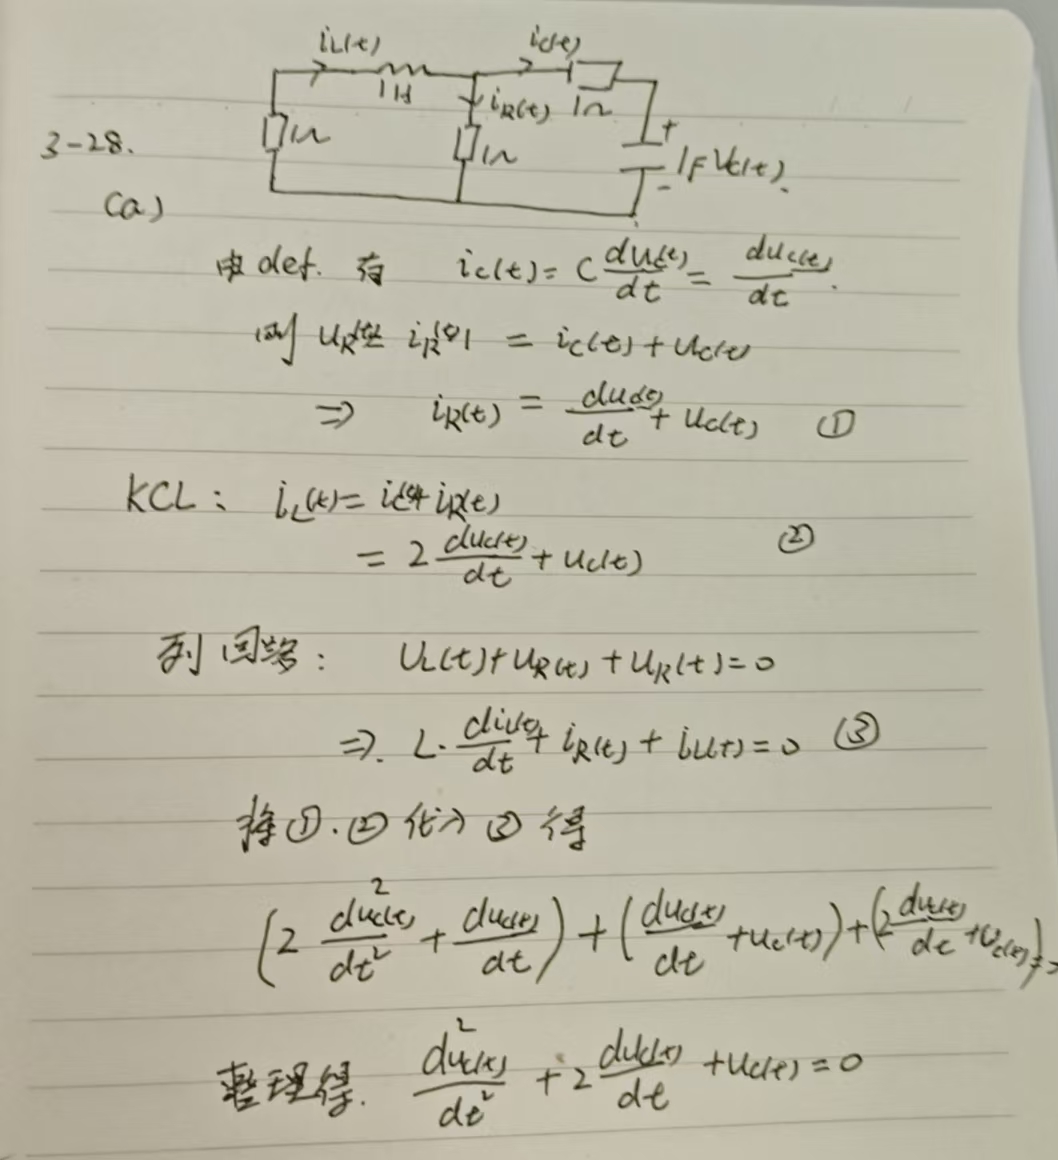 iL(t) ic(t)
1H iR(t) 1Ω
1Ω 1Ω + 1F Vc(t).
-
3-28.
(a)
由def. 有 ic(t) = C duc(t)/dt = duc(t)/dt.
则 iR(t)·1 = ic(t) + uc(t)
⇒ iR(t) = duc(t)/dt + uc(t) ①
KCL: iL(t) = ic(t) + iR(t)
= 2 duc(t)/dt + uc(t) ②
列回路: UL(t) + UR(t) + UR(t) = 0
⇒. L· diL(t)/dt + iR(t) + iL(t) = 0 ③
将①.②代入③得
(2 d²uc(t)/dt² + duc(t)/dt) + (duc(t)/dt + uc(t)) + (2 duc(t)/dt + uc(t)) =
整理得. d²uc(t)/dt² + 2 duc(t)/dt + uc(t) = 0